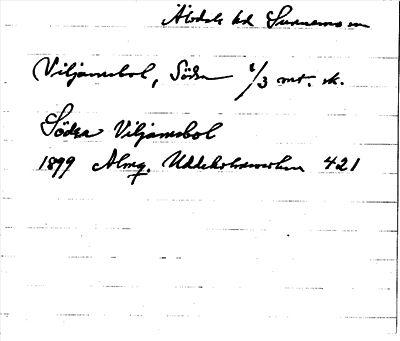 Älvdals hd Sunnemo sn
Viljamsbol, Södra 1/3 mt. sk.
Södra Viljamsbol
1899 Almq. Uddeholmsverken 421